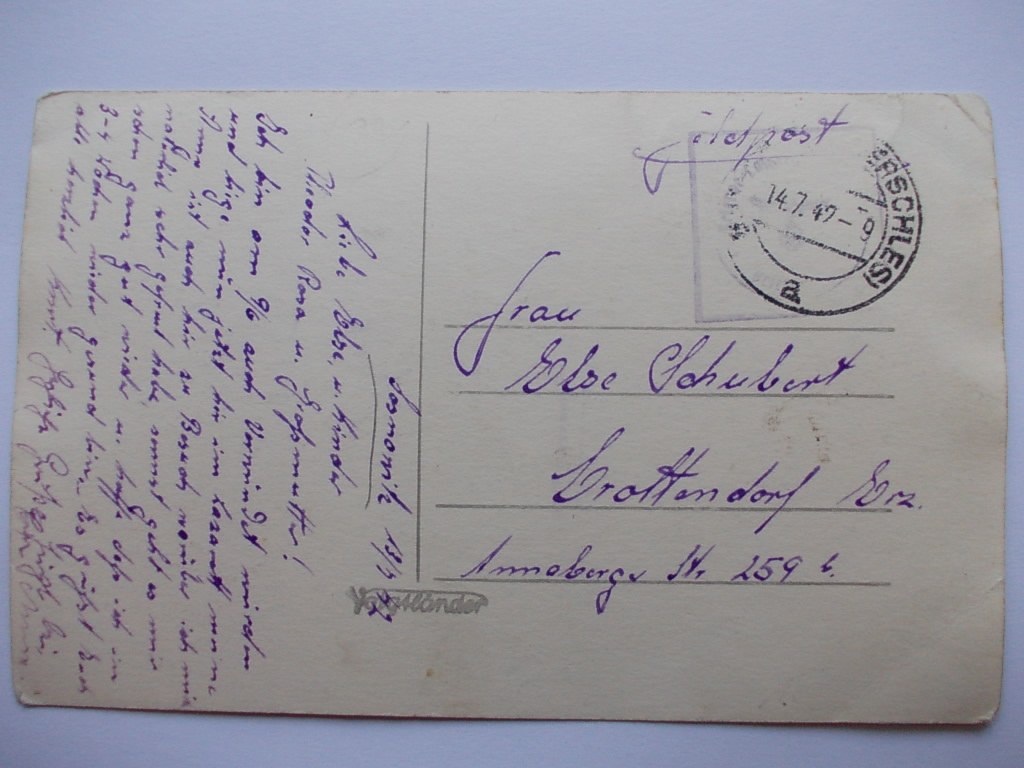 Feldpost
ERSCHLES)
14.7.42-9
a
Frau
Else Schubert
Crottendorf Erz.
Annaberger Str 259 b.
Sosnowitz 13/7 42
Liebe Else, u. Kinder
Theodor u. Großmutter!
Ich bin am 9/6 auch Verwundet worden
und liege nun jetzt hier im Lazarett meine
Irma ist auch hier zu Besuch worüber ich mich
natürlich sehr gefreut habe, sonst geht es mir
schon ganz gut wieder u. hoffe daß ich in
3-4 Wochen wieder gesund bin. Es grüßt Euch
alle herzlich Kurt
Voigtländer